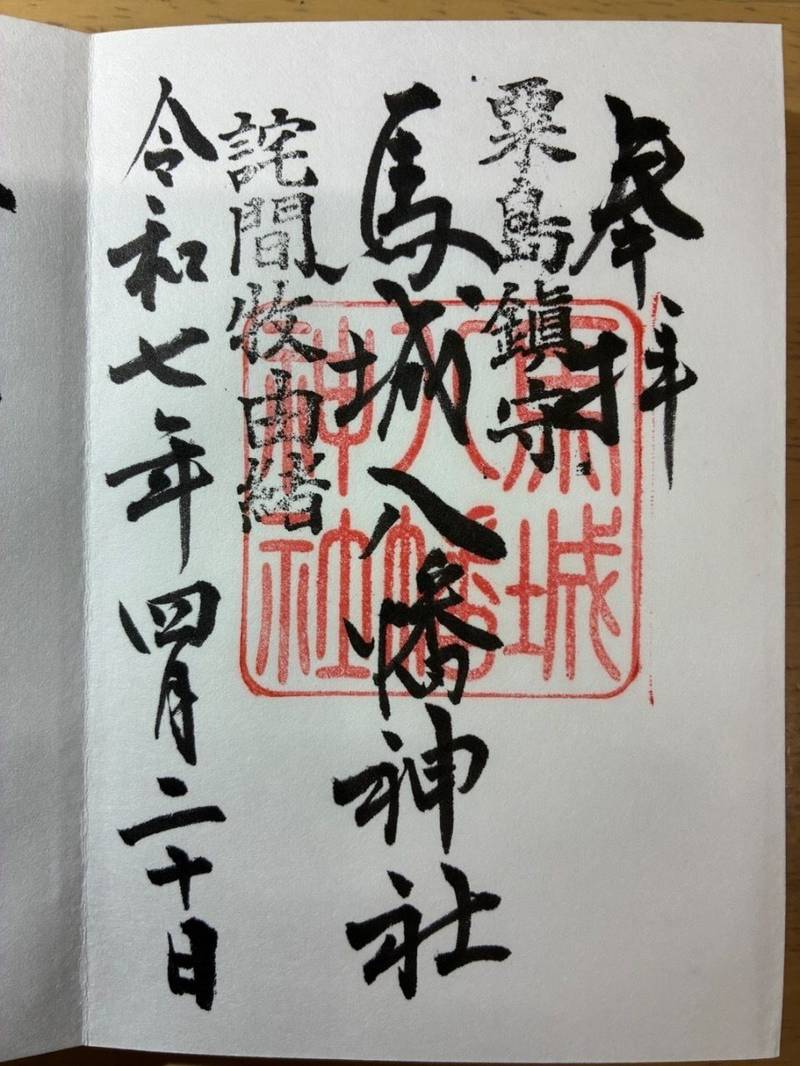 奉拝
粟島鎮守
馬城八幡神社
詫間牧由緒
令和七年四月二十日
馬城
八幡
神社